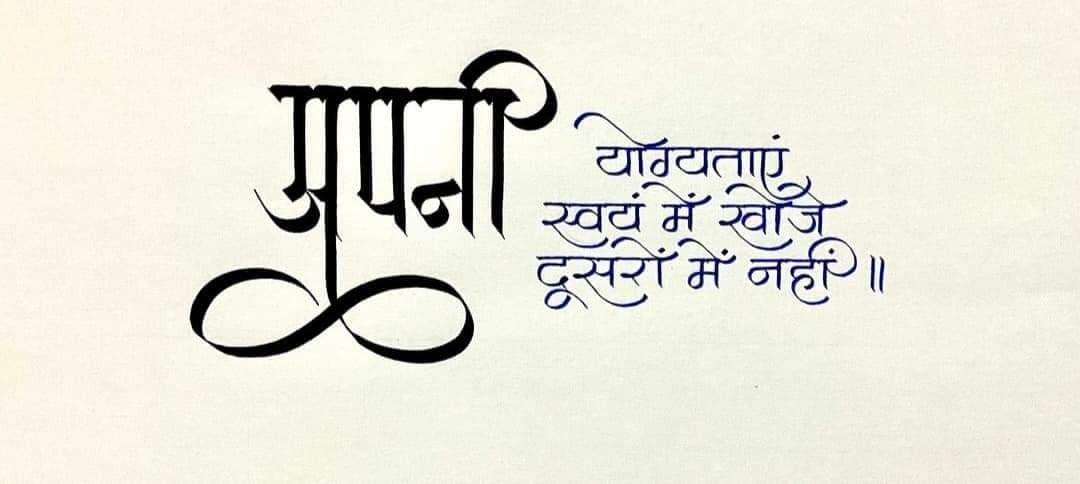 अपनी
योग्यताएं
स्वयं में खोजें
दूसरों में नहीं॥